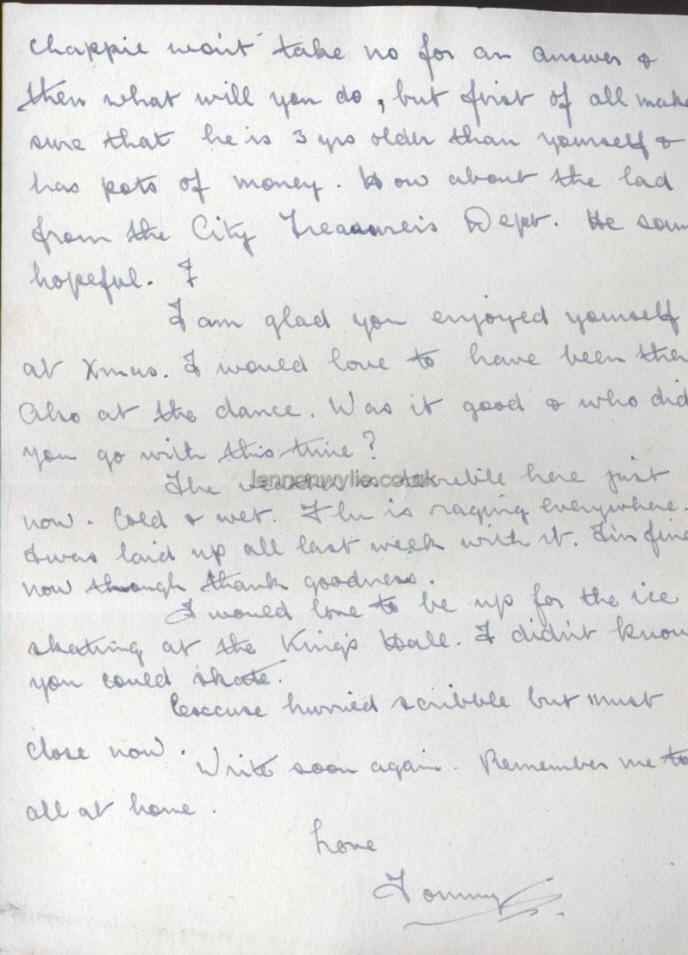 chappie won't take no for an answer &
then what will you do, but first of all make
sure that he is 3 yrs older than yourself &
has pots of money. How about the lad
from the City Treasurer's Dept. He soun
hopeful. I
I am glad you enjoyed yourself
at Xmas. I would love to have been ther
Also at the dance. Was it good & who did
you go with this time?
lennonwylie.co.uk
The weather is terrible here just
now. Cold & wet. Flu is raging everywhere.
I was laid up all last week with it. I'm fine
now though thank goodness.
I would love to be up for the ice
skating at the King's Hall. I didn't know
you could skate.
Excuse hurried scribble but must
close now.
Write soon again. Remember me to
all at home.
Love
Tommy